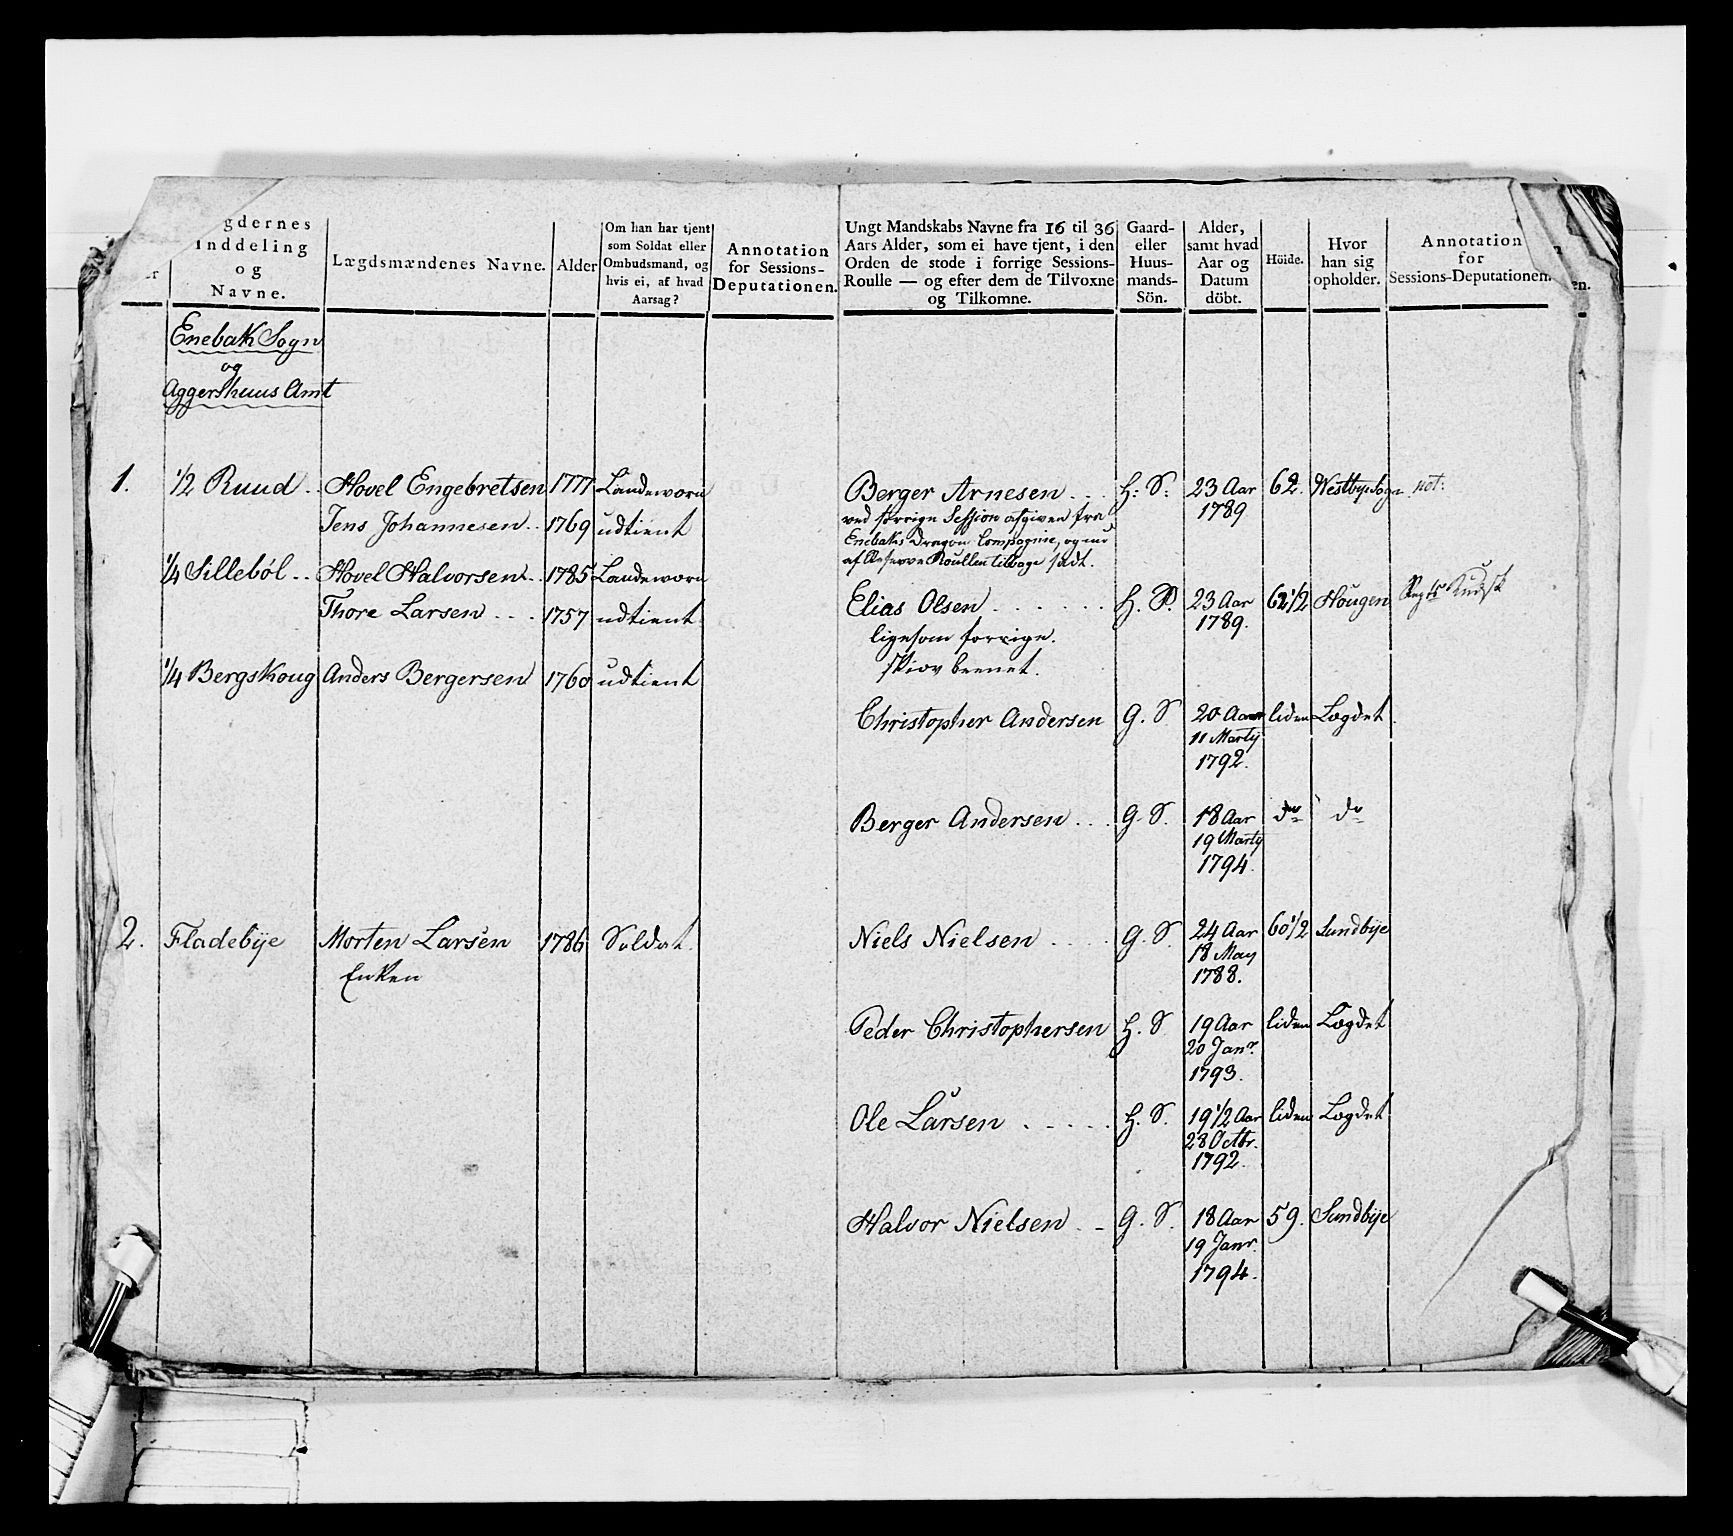 gdernes
Inddeling
og
Navne.
Lægdsmændenes Navne.
Alder
Om han har tjent
som Soldat eller
Ombudsmand, og
hvis ei, af hvad
Aarsag?
Annotation
for Sessions-
Deputationen.
Ungt Mandskabs Navne fra 16 til 36
Aars Alder, som ei have tjent, i den
Orden de stode i forrige Sessions-
Roulle — og efter dem de Tilvoxne
og Tilkomne.
Gaard-
eller
Huus-
mands-
Sön.
Alder,
samt hvad
Aar og
Datum
döbt.
Höide.
Hvor
han sig
opholder.
Annotation
for
Sessions-Deputationen.
Enebak Sogn
og
Aggershuus Amt
1. 1/2 Ruud .. Hovel Engebretsen 1777 Landeværn
Jens Johannesen .. 1769 udtient
1/4 Silleböl .. Hovel Halvorsen .. 1785 Landeværn
Thore Larsen ... 1757 udtient
1/4 Bergskoug Anders Bergersen 1760 udtient
2. Fladebÿe Morten Larsen 1786 Soldat.
Enken
Berger Arnesen ... H: S: 23 Aar 62. Westbye Sogn not:
1789
ved forrige Session afgiven fra
Enebaks Dragon Compagnie, og nu
af Reserve Roullen tilbage sadt.
Elias Olsen ...... H. S. 23 Aar 62 1/2 Hougen
1789.
ligesom forrige.
skiov beenet.
Christopher Andersen G. S. 20 Aar liden Lægdet.
11 Martÿ
1792.
Berger Andersen ... G. S. 18 Aar do do
19 Martÿ
1794.
Niels Nielsen .... G. S. 24 Aar 60 1/2 Sundbÿe
18 May
1788.
Peder Christophersen H. S. 19 Aar liden Lægdet
20 Janr.
1793.
Ole Larsen ..... H. S. 19 1/2 Aar liden Lægdet
28 Octbr.
1792.
Halvor Nielsen .. G. S. 18 Aar 59. Sundbÿe
19 Janr.
1794.